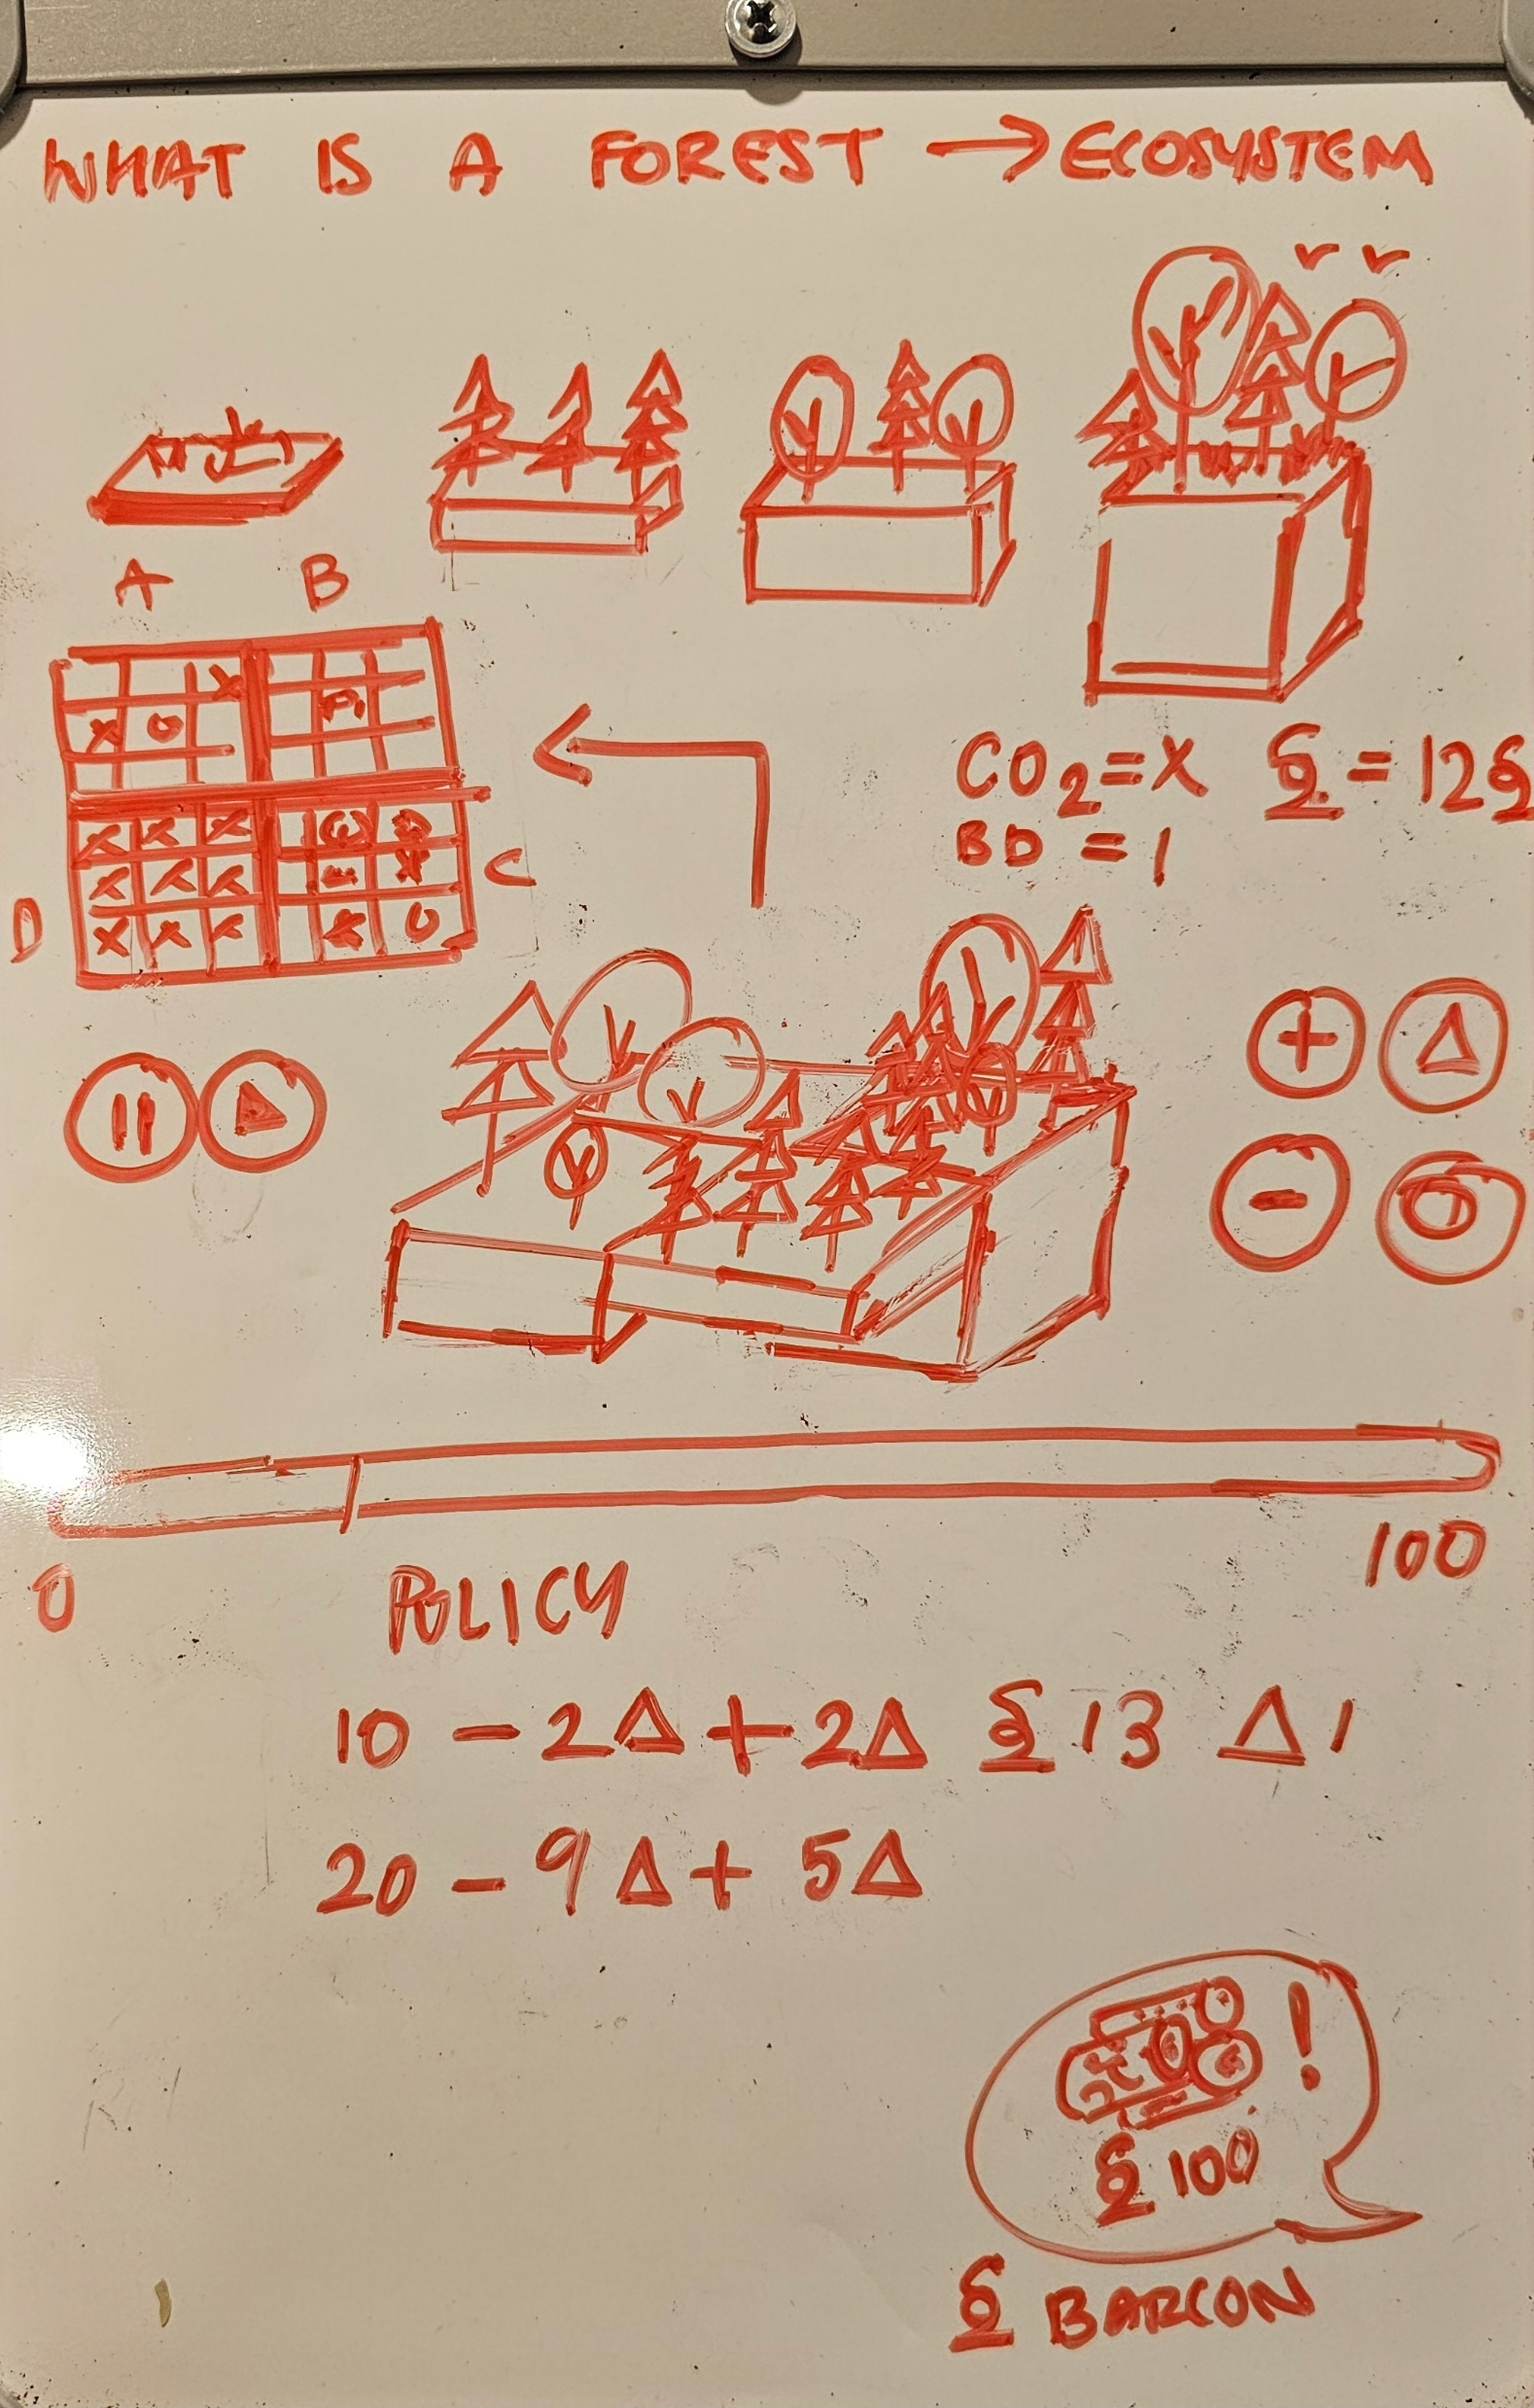 WHAT IS A FOREST → ECOSYSTEM
A B
C
D
CO2 = X § = 12§
BD = 1
+ Δ
- O
0 100
POLICY
10 - 2Δ + 2Δ § 13 Δ 1
20 - 9Δ + 5Δ
!
§ 100
§ BARCON